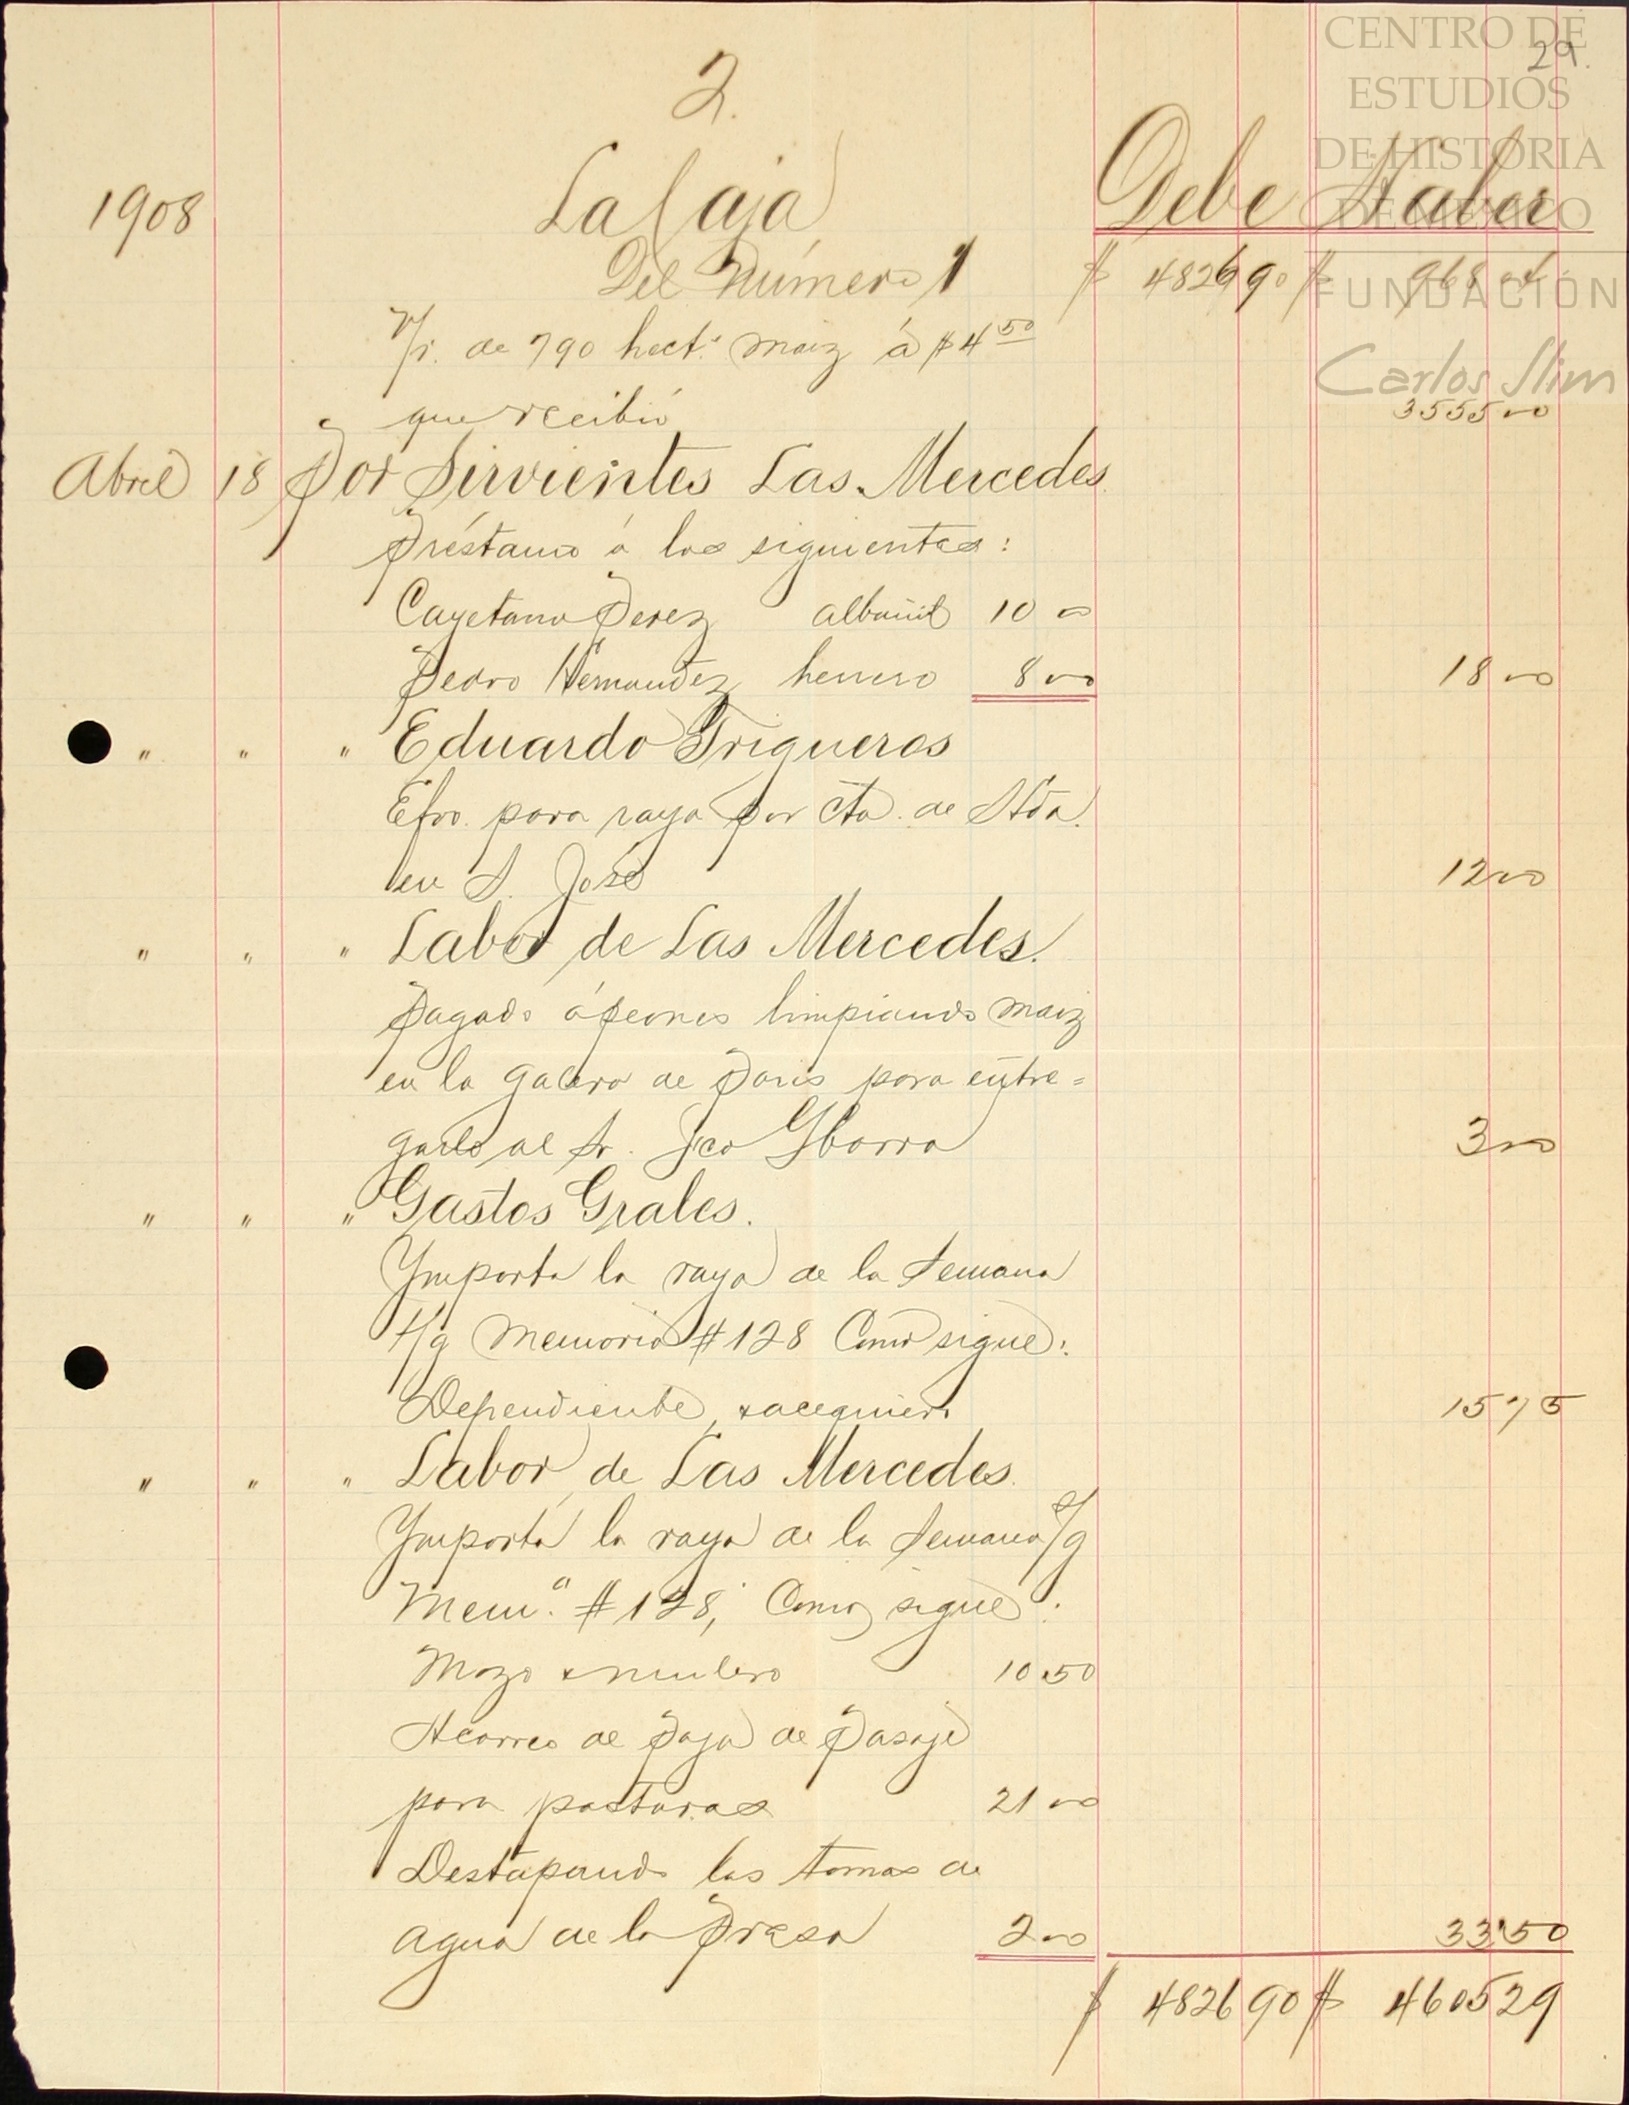 CENTRO DE
ESTUDIOS
DE HISTORIA
DE MEXICO
FUNDACIÓN
Carlos Slim
29.
2.
1908 La Caja Debe Haber
Del Número 1 $ 4826 90 $ 968 04
V/r. de 790 hect.s maiz á $4 50
que recibió 3555 00
Abril 18 Por Sirvientes Las Mercedes
Préstamo á los siguientes:
Cayetano Perez albañil 10 00
Pedro Hernandez herrero 8 00 18 00
" " " Eduardo Trigueros
Efvo. para raya por cta. de Htda.
en S. José 12 00
" " " Labor de Las Mercedes.
Pagado á peones limpiando maiz
en la galera de Paris para entre=
garlo al Sr. Fco Ybarra 3 00
" " " Gastos Grales.
Ymporta la raya de la Semana
s/g Memoria #128 Como sigue:
Dependiente, y acequiero 15 75
" " " Labor de Las Mercedes.
Ymporta la raya de la Semana s/g
Mem.a #128, Como sigue:
Mozo y mulero 10 50
Acarreo de paja de Pasaje
para pasturas 21 00
Destapando las tomas de
agua de la Presa 2 00 33 50
$ 4826 90 $ 4605 29